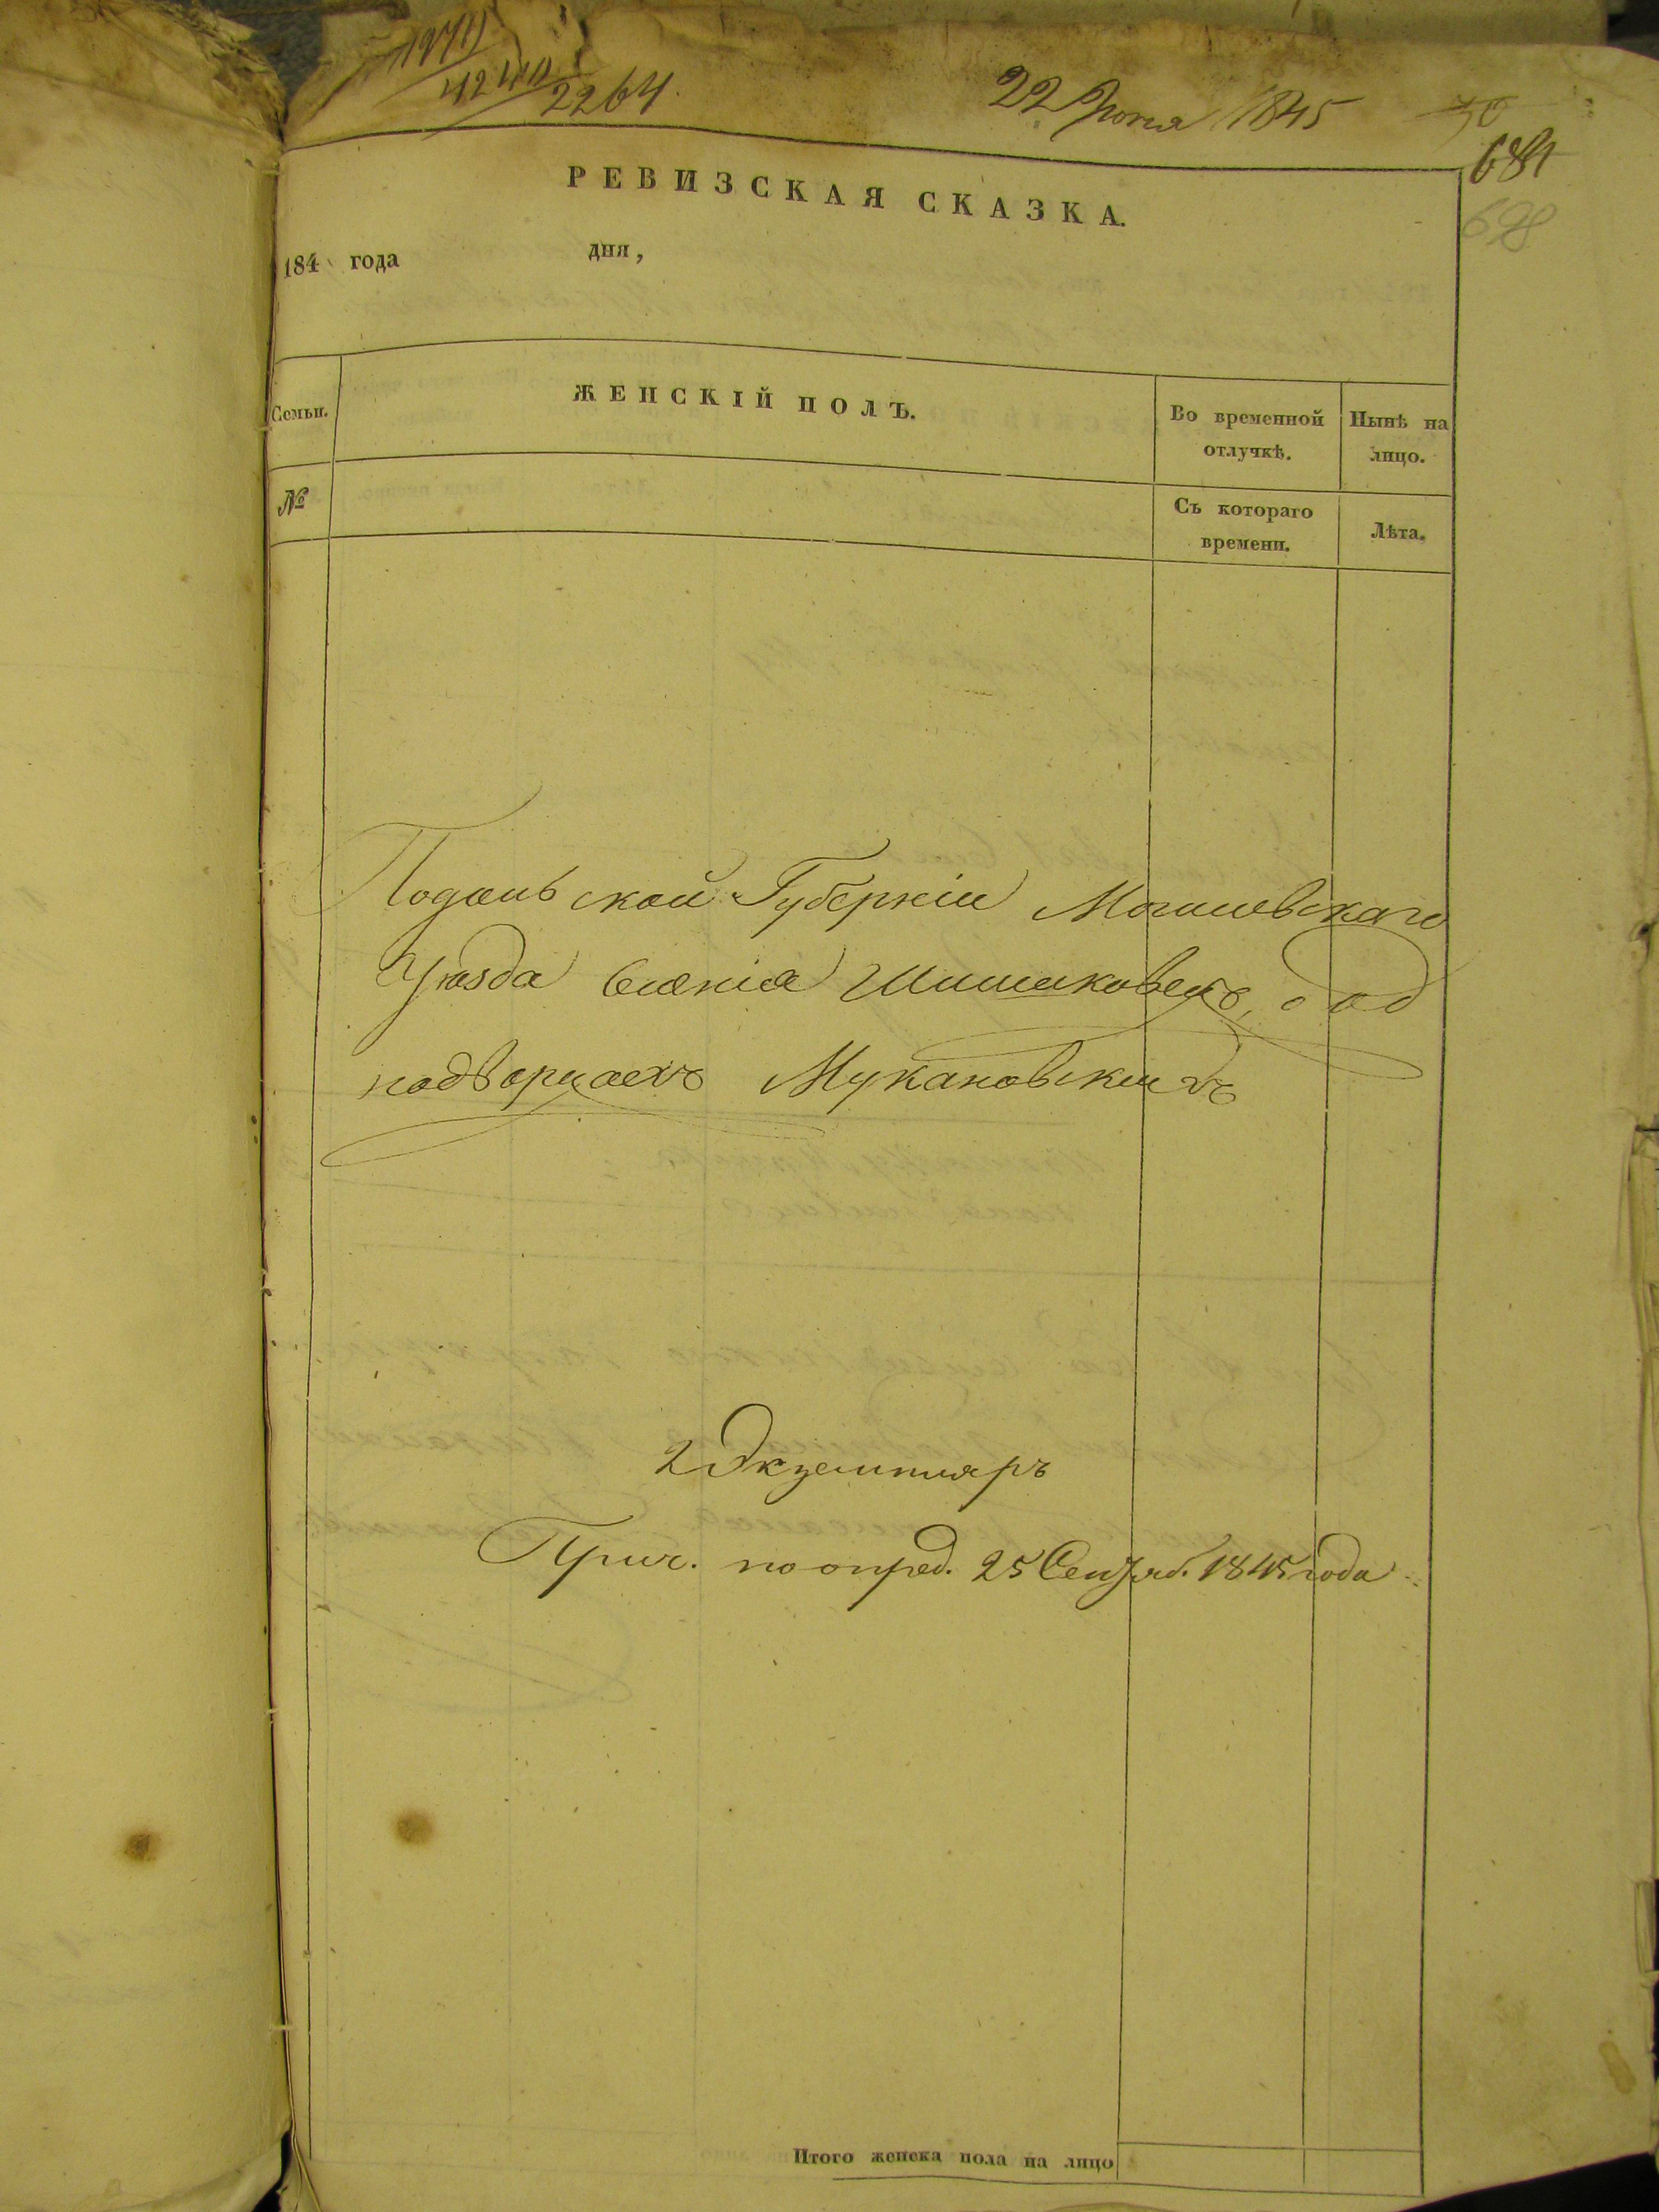 2264.
22 Іюня 1845
684
698
РЕВИЗСКАЯ СКАЗКА.
184 года дня,
Семьи. ЖЕНСКІЙ ПОЛЪ. Во временной отлучкѣ. Нынѣ на лицо.
№ Съ котораго времени. Лѣта.
Подольской Губерніи Могилевскаго
Уѣзда Селенія Шишковецъ, о од
нодворцахъ Мукановскихъ
2 Экземпляръ
Прич. по опред. 25 Сентяб. 1845 года
Итого женска пола на лицо